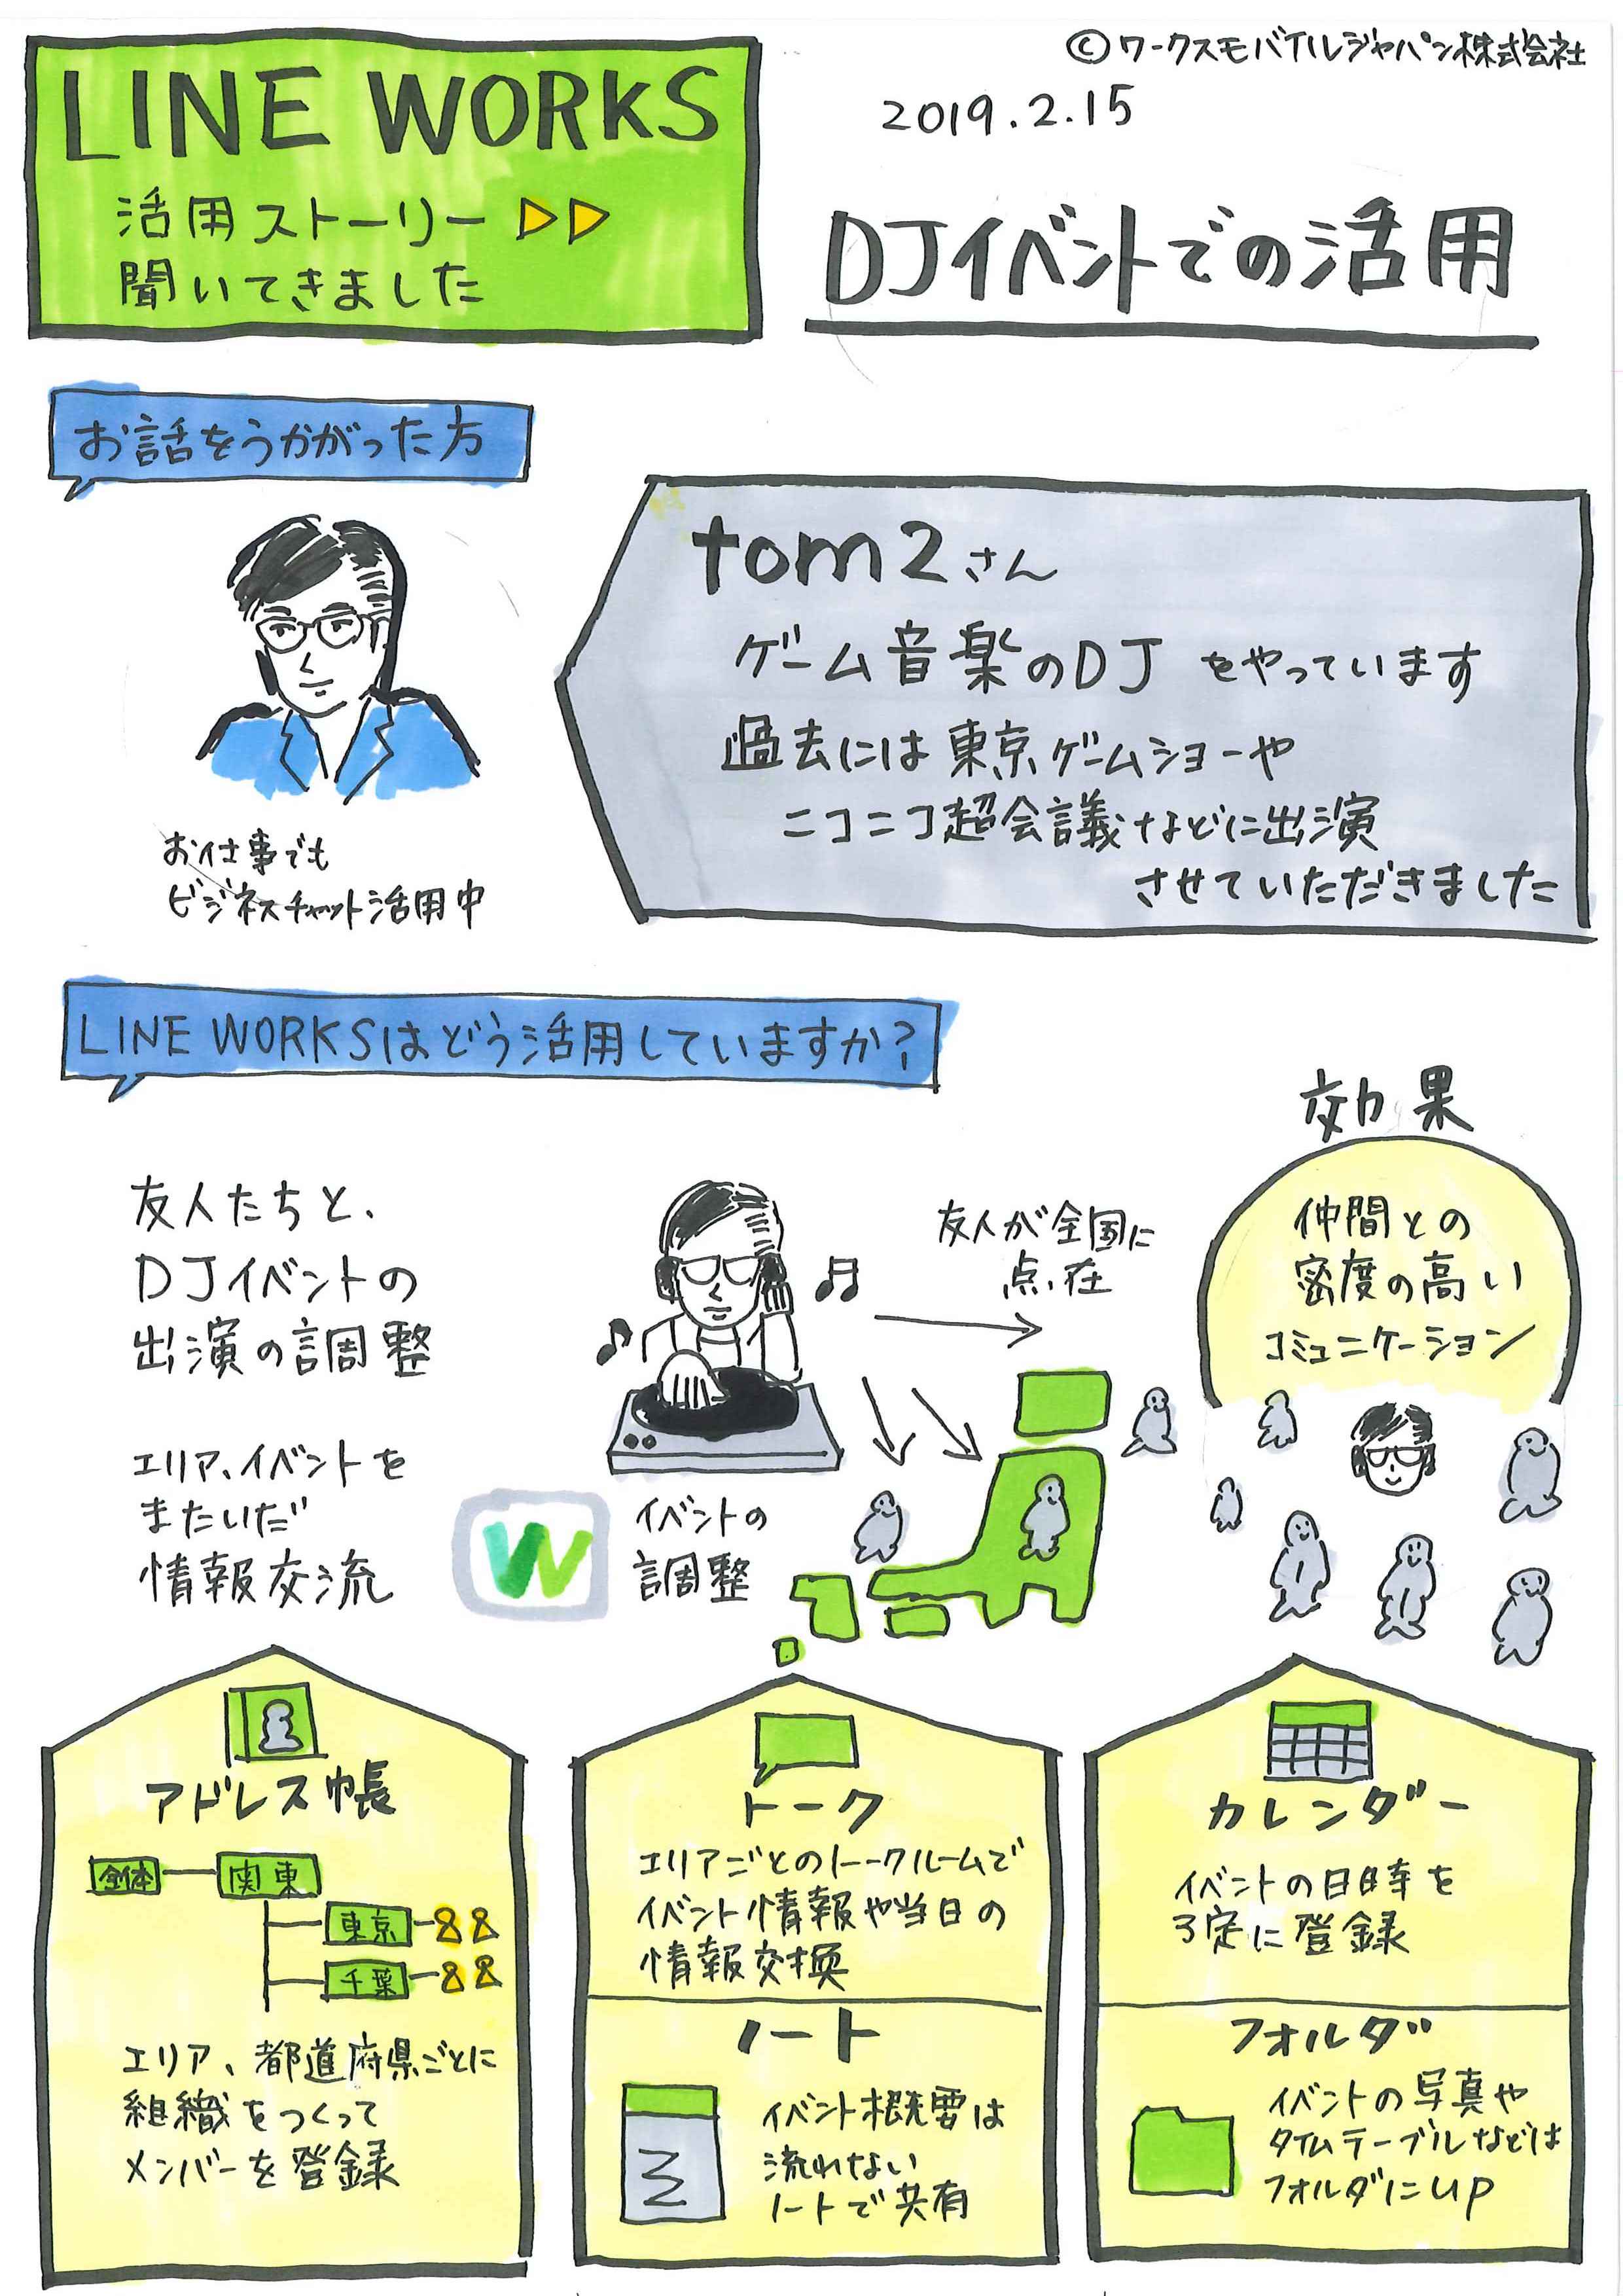 LINE WORKS
活用ストーリー
聞いてきました
©ワークスモバイルジャパン株式会社
2019.2.15
DJイベントでの活用
お話をうかがった方
tom2さん
ゲーム音楽のDJをやっています
過去には東京ゲームショーや
ニコニコ超会議などに出演
させていただきました
お仕事でも
ビジネスチャット活用中
LINE WORKSはどう活用していますか?
友人たちと、
DJイベントの
出演の調整
エリア、イベントを
またいだ
情報交流
W
イベントの
調整
友人が全国に
点在
効果
仲間との
密度の高い
コミュニケーション
アドレス帳
全体
関東
東京
千葉
エリア、都道府県ごとに
組織をつくって
メンバーを登録
トーク
エリアごとのトークルームで
イベント情報や当日の
情報交換
ノート
イベント概要は
流れない
ノートで共有
カレンダー
イベントの日時を
予定に登録
フォルダ
イベントの写真や
タイムテーブルなどは
フォルダにup